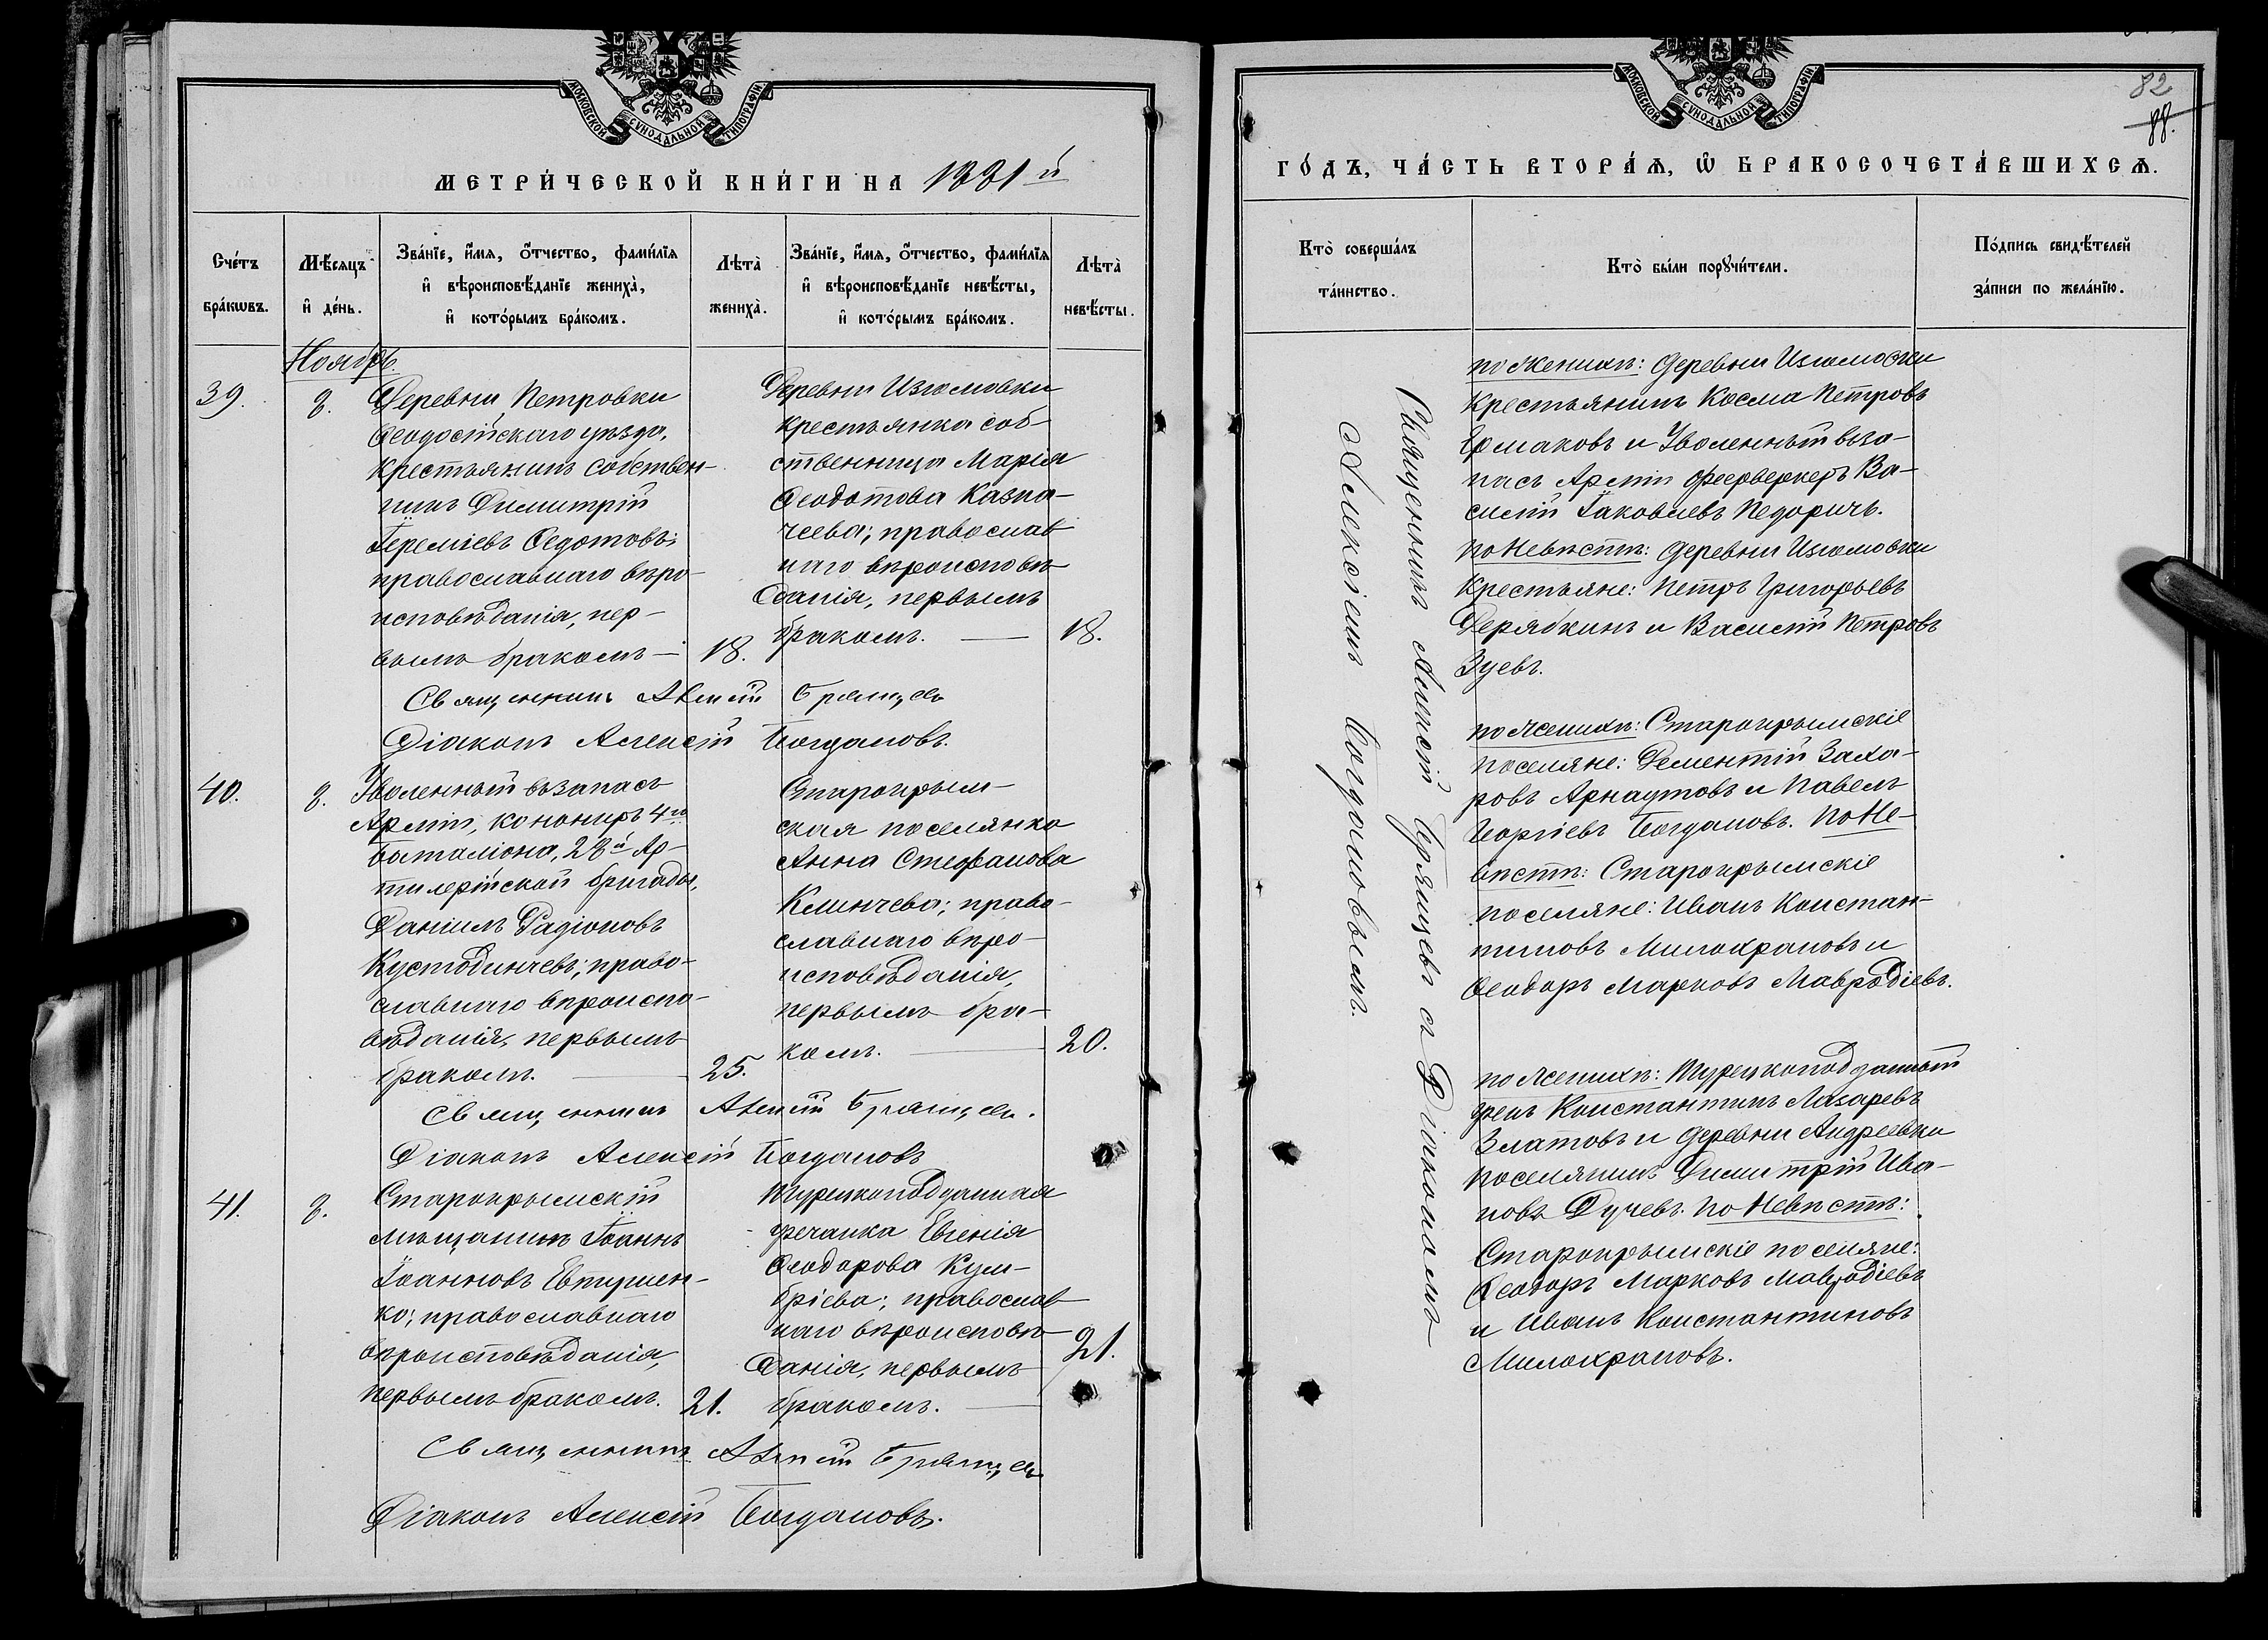 МОСКОВСКОЙ СѴНОДАЛЬНОЙ ТИПОГРАФІИ
МЕТРИ́ЧЕСКОЙ КНИ́ГИ НА 1881 й
Сче́тъ бра́кѡвъ.
Мѣ́сяцъ и҆ де́нь.
Зва́нїе, и҆́мѧ, ѻ҆́тчество, фами́лїѧ
и҆ вѣроисповѣ́данїе жениха̀,
и҆ кото́рымъ бра́комъ.
Лѣта̀ жениха̀.
Зва́нїе, и҆́мѧ, ѻ҆́тчество, фами́лїѧ
и҆ вѣроисповѣ́данїе невѣ́сты,
и҆ кото́рымъ бра́комъ.
Лѣта̀ невѣ́сты.
Ноябрь.
39.
8.
Деревни Петровки
Ѳеодосійскаго уѣзда,
крестьянинъ собствен-
никъ Димитрій
Іереміевъ Ѳедотовъ;
православнаго вѣро-
исповѣданія, пер-
вымъ бракомъ —
18.
Деревни Изюмовки
крестьянка соб-
ственница Марія
Ѳеодотова Казна-
чеева; православ
наго вѣроисповѣ-
данія, первымъ
бракомъ. —
18.
Священникъ Алексій Брящевъ
Діаконъ Алексій Богдановъ.
40.
8.
Уволенный въ запасъ
Арміи, канониръ 4й
баталіона, 28й Ар-
тилерійской бригады,
Даніилъ Радіоновъ
Кустодинчевъ; право-
славнаго вѣроиспо-
вѣданія, первымъ
бракомъ. —
25.
Старокрым-
ская поселянка
Анна Стефанова
Клинчева; право-
славнаго вѣро-
исповѣданія,
первымъ бра-
комъ. —
20.
Священникъ Алексій Брящевъ.
Діаконъ Алексій Богдановъ
41.
8.
Старокрымскій
мѣщанинъ Іоаннъ
Іоанновъ Евтушен-
ко; православнаго
вѣроисповѣданія,
первымъ бракомъ.
21.
Турецкоподданная
гречанка Евгенія
Ѳеодорова Кум-
бріева; православ
наго вѣроисповѣ-
данія, первымъ
бракомъ. —
21.
Священникъ Алексій Брящевъ
Діаконъ Алексій Богдановъ.
МОСКОВСКОЙ СѴНОДАЛЬНОЙ ТИПОГРАФІИ
82
88.
ГО́ДЪ, ЧА́СТЬ ВТОРА́Ѧ, Ѽ БРАКОСОЧЕТА́ВШИХСѦ.
Кто̀ соверша́лъ
та́инство.
Кто̀ бы́ли порꙋчи́тели.
По́дпись свидѣ́телей
за́писи по жела́нїю.
Священникъ Алексій Брящевъ съ Діакономъ
Алексіемъ Богдановымъ.
по женихѣ: деревни Изюмовки
крестьянинъ Косма Петровъ
Ермаковъ и Уволенный въ за-
пасъ Арміи фейерверкеръ Ва-
силій Іаковлевъ Педоричъ.
по невѣстѣ: деревни Изюмовки
крестьяне: Петръ Григорьевъ
Дерябкинъ и Василій Петровъ
Зуевъ.
по женихѣ: Старокрымскіе
поселяне: Дементій Заха-
ровъ Арнаутовъ и Павелъ
Георгіевъ Богдановъ. По не-
вѣстѣ: Старокрымскіе
поселяне: Иванъ Констан-
тиновъ Милохрановъ и
Ѳеодоръ Марковъ Мавродіевъ.
по женихѣ: турецкоподданный
грекъ Константинъ Лазаревъ
Златовъ и деревни Андреевки
поселянинъ Димитрій Ива-
новъ Дучевъ. по невѣстѣ:
Старокрымскіе поселяне:
Ѳеодоръ Марковъ Мавродіевъ
и Иванъ Константиновъ
Милохрановъ.